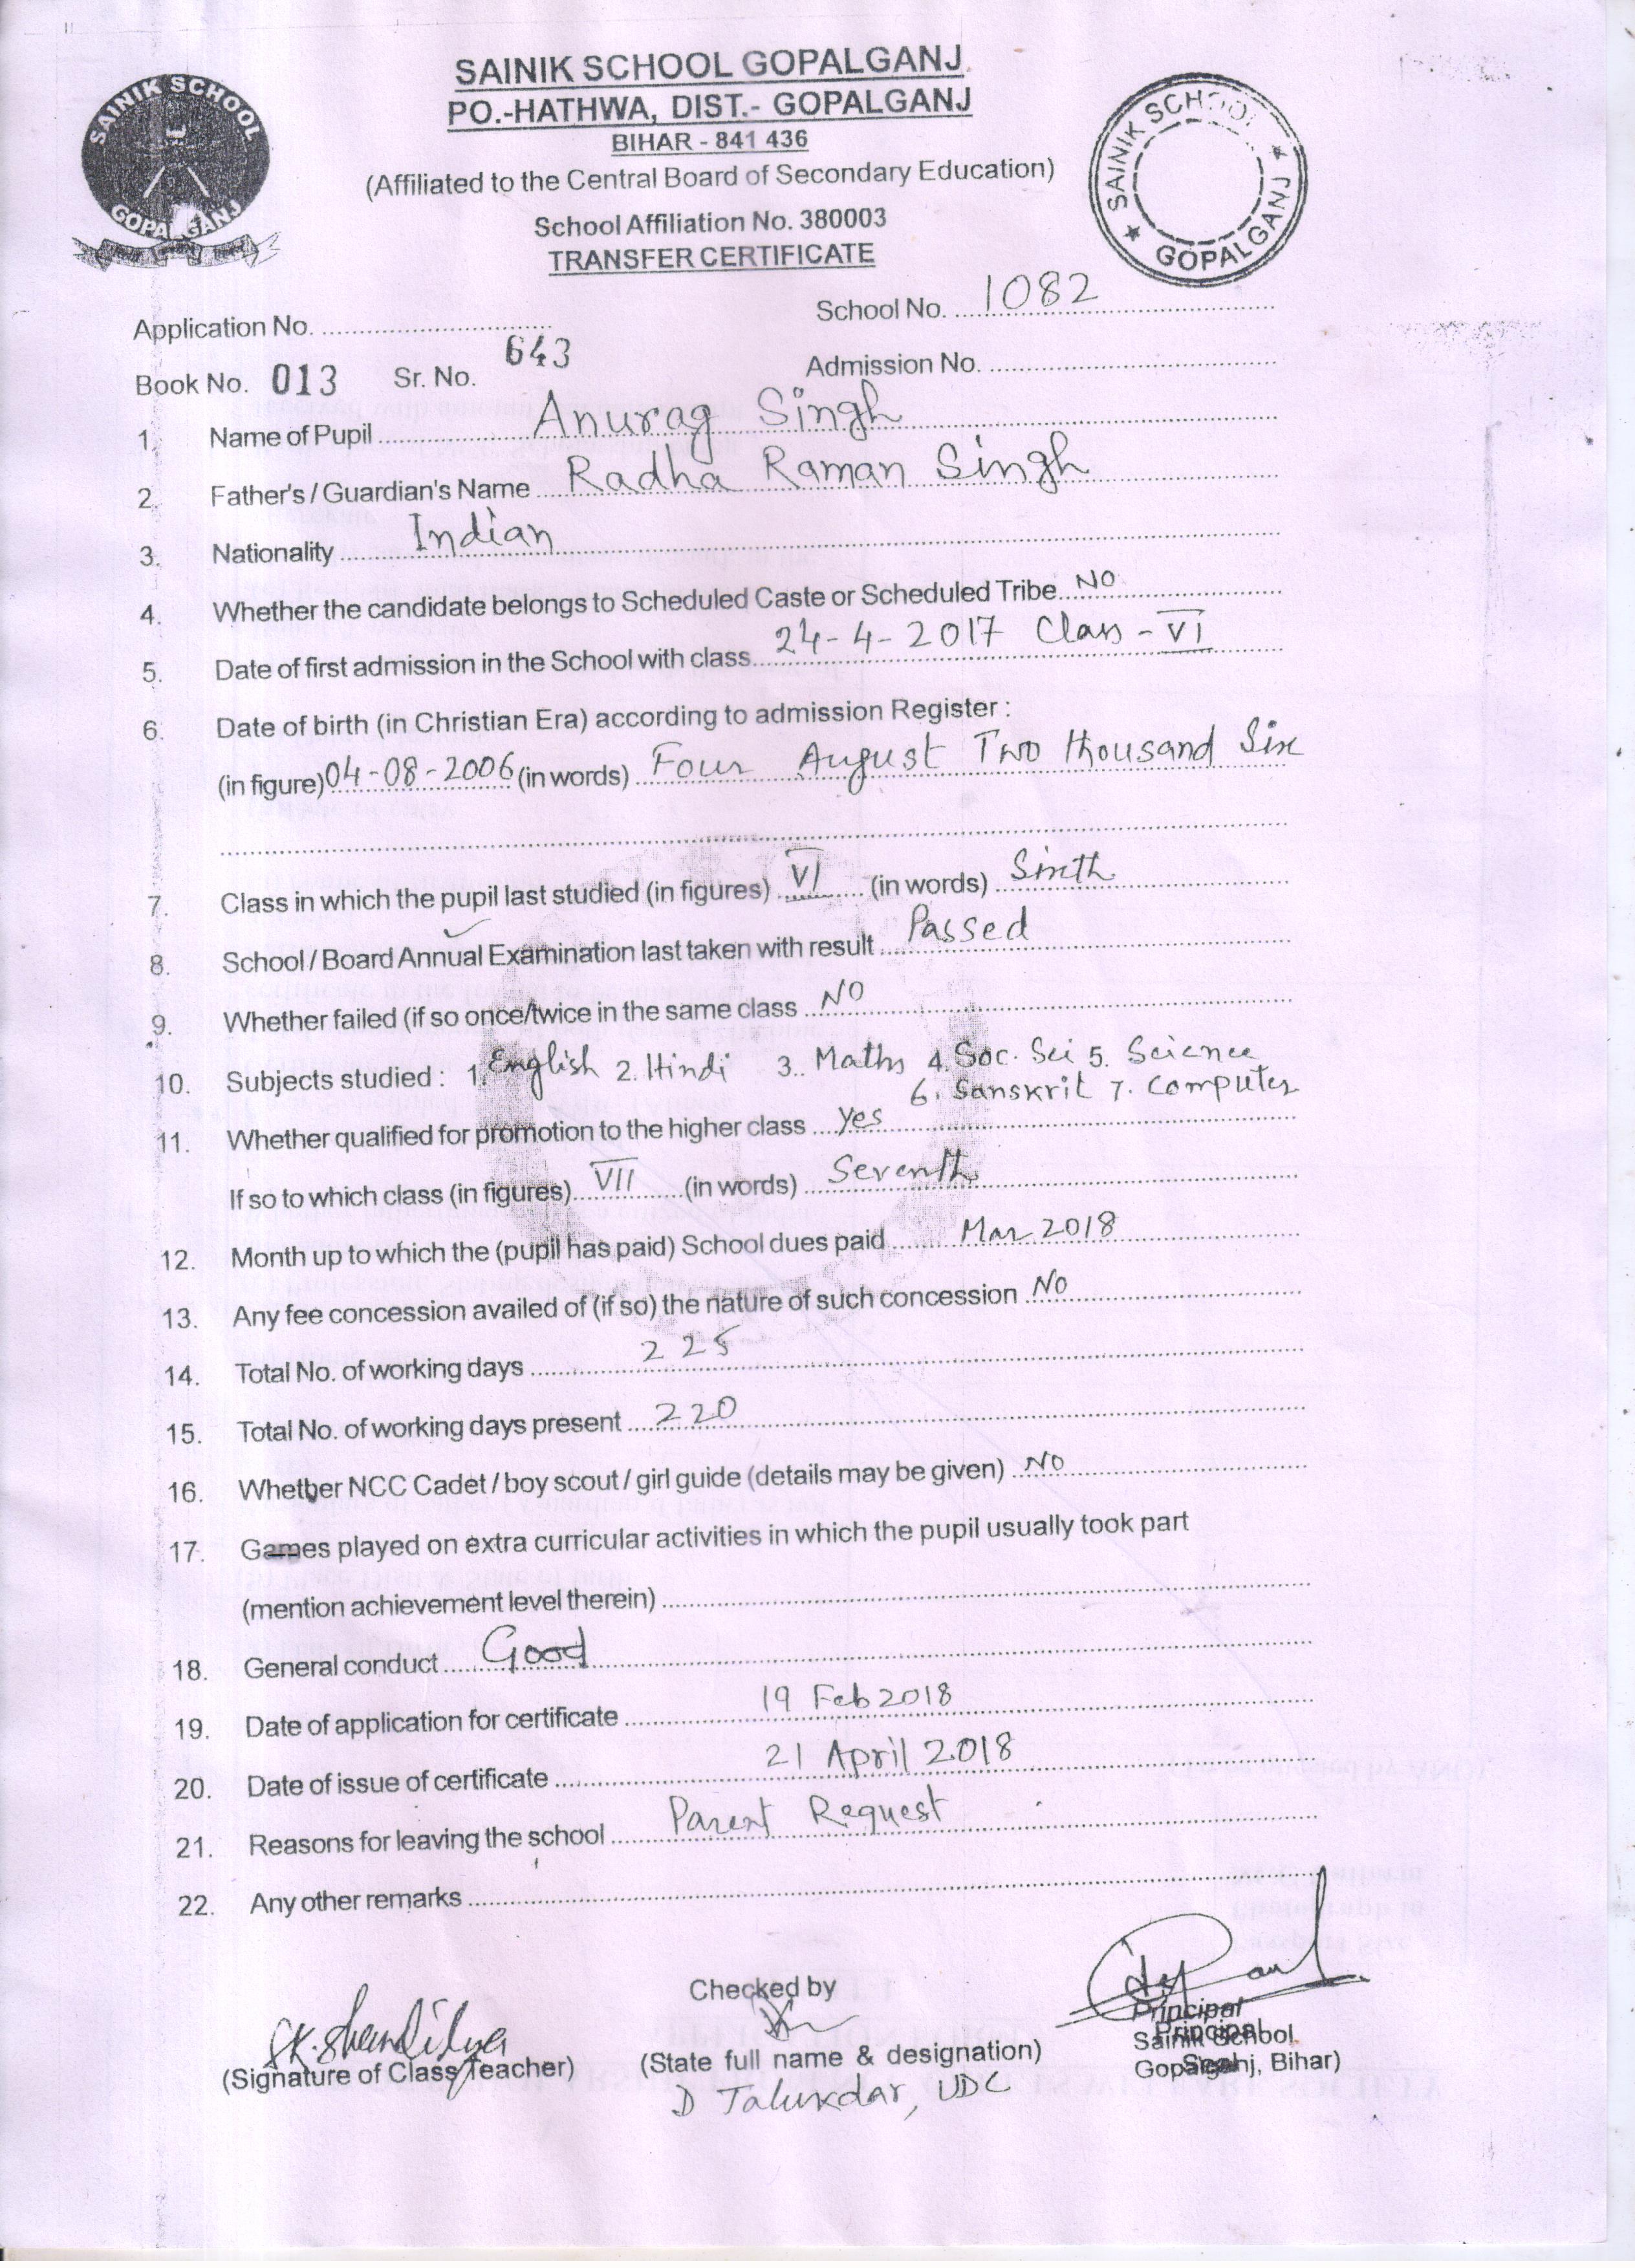 SAINIK SCHOOL GOPALGANJ
PO.-HATHWA, DIST.- GOPALGANJ
BIHAR - 841 436
(Affiliated to the Central Board of Secondary Education)
School Affiliation No. 380003
TRANSFER CERTIFICATE
SAINIK SCHOOL
GOPALGANJ
SAINIK SCHOOL
★ GOPALGANJ ★
Application No. ............ School No. 1082
Book No. 013 Sr. No. 643 Admission No. ............
1. Name of Pupil Anurag Singh
2. Father's / Guardian's Name Radha Raman Singh
3. Nationality Indian
4. Whether the candidate belongs to Scheduled Caste or Scheduled Tribe NO
5. Date of first admission in the School with class 24-4-2017 Class - VI
6. Date of birth (in Christian Era) according to admission Register :
(in figure) 04-08-2006 (in words) Four August Two thousand Six
7. Class in which the pupil last studied (in figures) VI (in words) Sixth
8. School / Board Annual Examination last taken with result Passed
9. Whether failed (if so once/twice in the same class NO
10. Subjects studied : 1. English 2. Hindi 3. Maths 4. Soc. Sci 5. Science
6. Sanskrit 7. Computer
11. Whether qualified for promotion to the higher class yes
If so to which class (in figures) VII (in words) Seventh
12. Month up to which the (pupil has paid) School dues paid Mar 2018
13. Any fee concession availed of (if so) the nature of such concession NO
14. Total No. of working days 225
15. Total No. of working days present 220
16. Whether NCC Cadet / boy scout / girl guide (details may be given) NO
17. Games played on extra curricular activities in which the pupil usually took part
(mention achievement level therein)
18. General conduct Good
19. Date of application for certificate 19 Feb 2018
20. Date of issue of certificate 21 April 2018
21. Reasons for leaving the school Parent Request
22. Any other remarks
Checked by
SK. Shandilya
(Signature of Class Teacher) (State full name & designation)
D Talukdar, UDC
Principal
Principal
Sainik School
Seal
Gopalganj, Bihar)